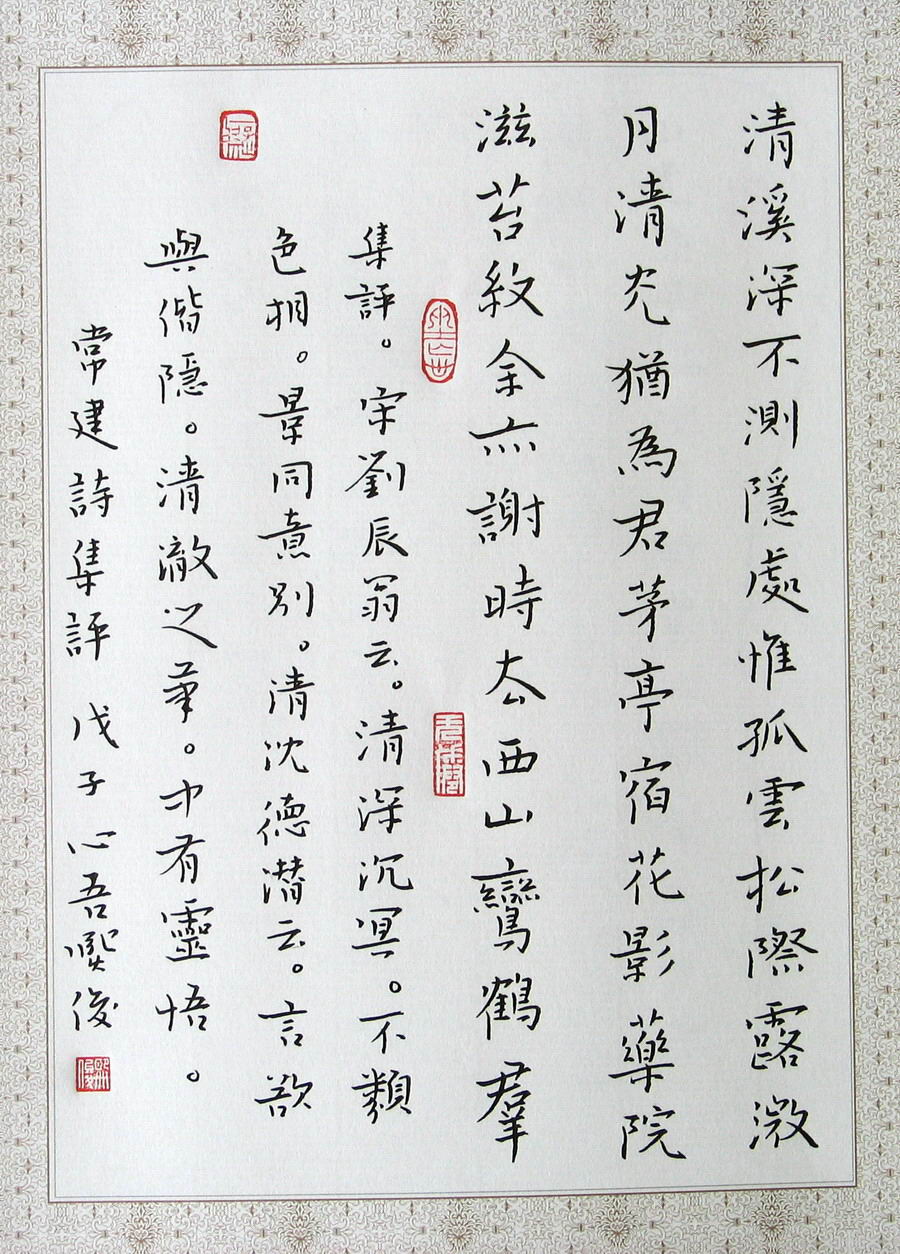 清溪深不測隱處惟孤雲松際露澂
月清光猶為君茅亭宿花影藥院
滋苔紋余亦謝時去西山鸞鶴羣
集評。宋劉辰翁云。清深沉冥。不類
色相。景同意別。清沈德潛云。言欲
與偕隱。清澈之筆。中有靈悟。
常建詩集評 戊子心吾熙俊